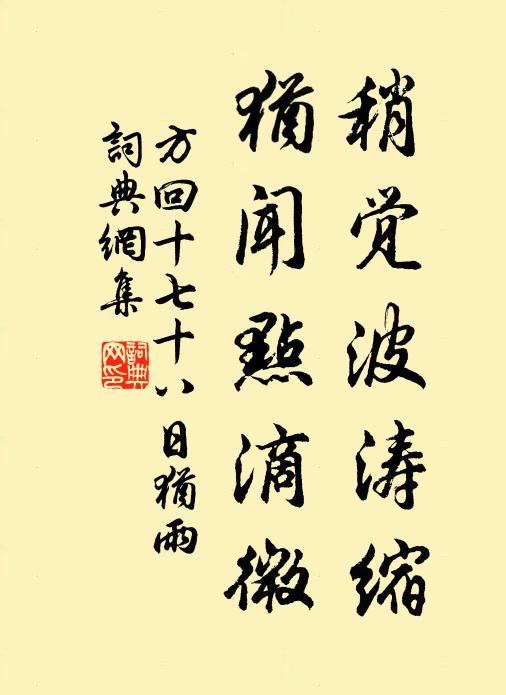 稍觉波涛缩
猶闻點滴微
方回十七十八日猶雨
詞典網集
詞典网印